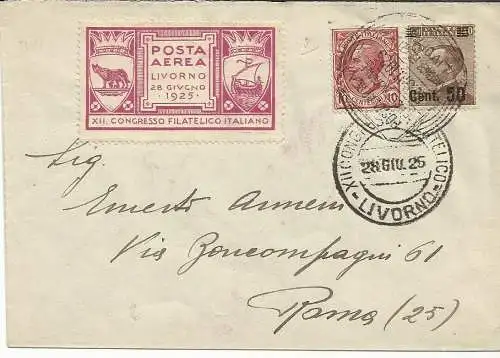 POSTA
AEREA
LIVORNO
28 GIUGNO
1925
XII. CONGRESSO FILATELICO ITALIANO
10
Cent. 50
XII CONGRESSO FILATELICO
28 GIU. 25
- LIVORNO -
Sig.
Ernesto Armeni
Via Boncompagni 61
Roma (25)